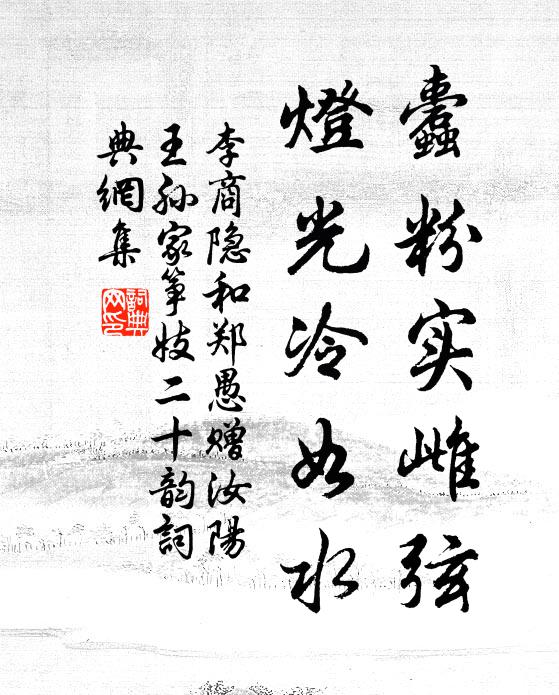 蠹粉实雌弦
燈光冷如水
李商隐和郑愚赠汝陽
王孙家筝妓二十韵詞
典網集
詞典
网印